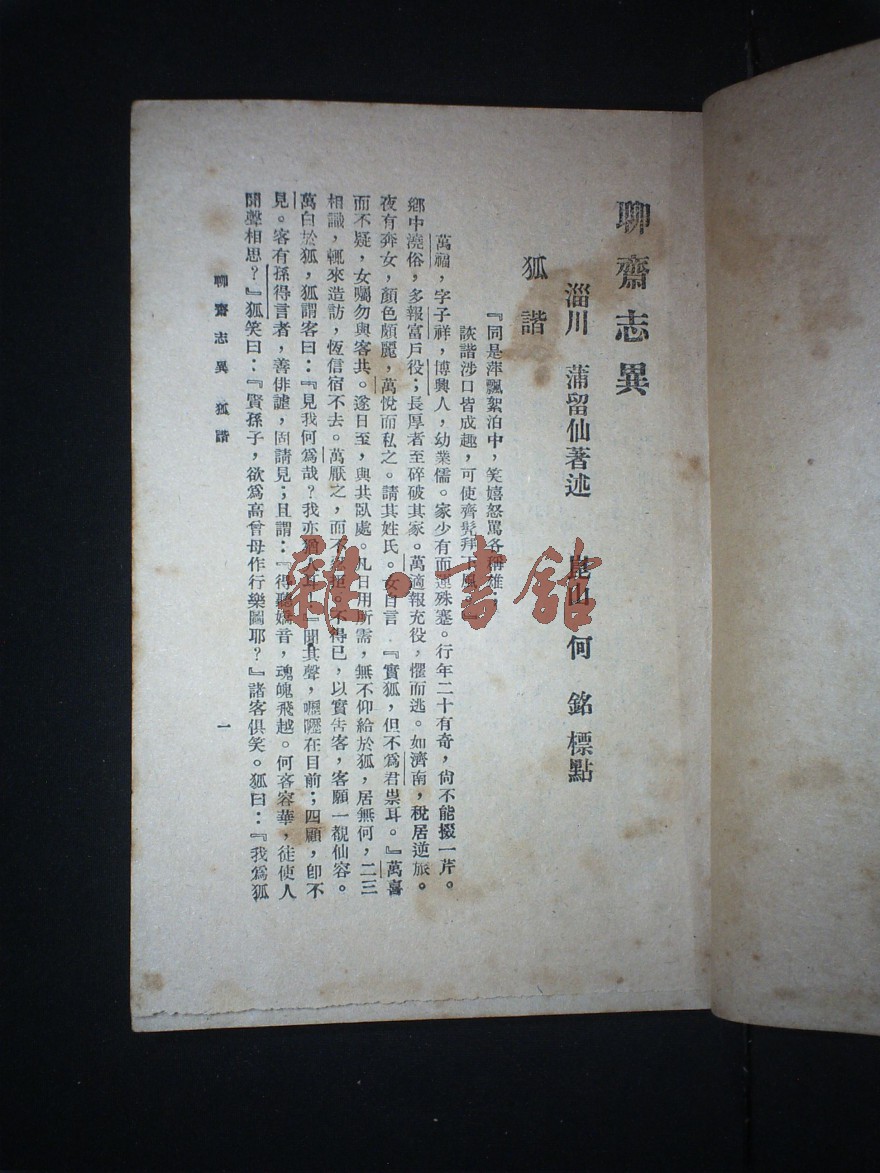 聊齋志異
淄川　蒲留仙著述　崑山　何　銘標點
狐諧
『同是萍飄絮泊中，笑嬉怒罵各稱雄；
詼諧涉口皆成趣，可使齊髡拜下風。』
萬福，字子祥，博興人，幼業儒。家少有而運殊蹇。行年二十有奇，尙不能掇一芹。
鄉中澆俗，多報富戶役；長厚者至碎破其家。萬適報充役，懼而逃。如濟南，稅居逆旅。
夜有奔女，顏色頗麗，萬悅而私之。請其姓氏。女自言：『實狐，但不爲君祟耳。』萬喜
而不疑，女囑勿與客共。遂日至，與共臥處。凡日用所需，無不仰給於狐，居無何，二三
相識，輒來造訪，恆信宿不去。萬厭之，而不忍拒。不得已，以實告客，客願一覩仙容。
萬白於狐，狐謂客曰：『見我何爲哉？我亦猶人耳。』聞其聲，嚦嚦在目前；四顧，卽不
見。客有孫得言者，善俳謔，固請見；且謂：『得聽嬌音，魂魄飛越。何吝容華，徒使人
聞聲相思？』狐笑曰：『賢孫子，欲爲高曾母作行樂圖耶？』諸客俱笑。狐曰：『我爲狐
聊齋志異　狐諧
一
雜·書館